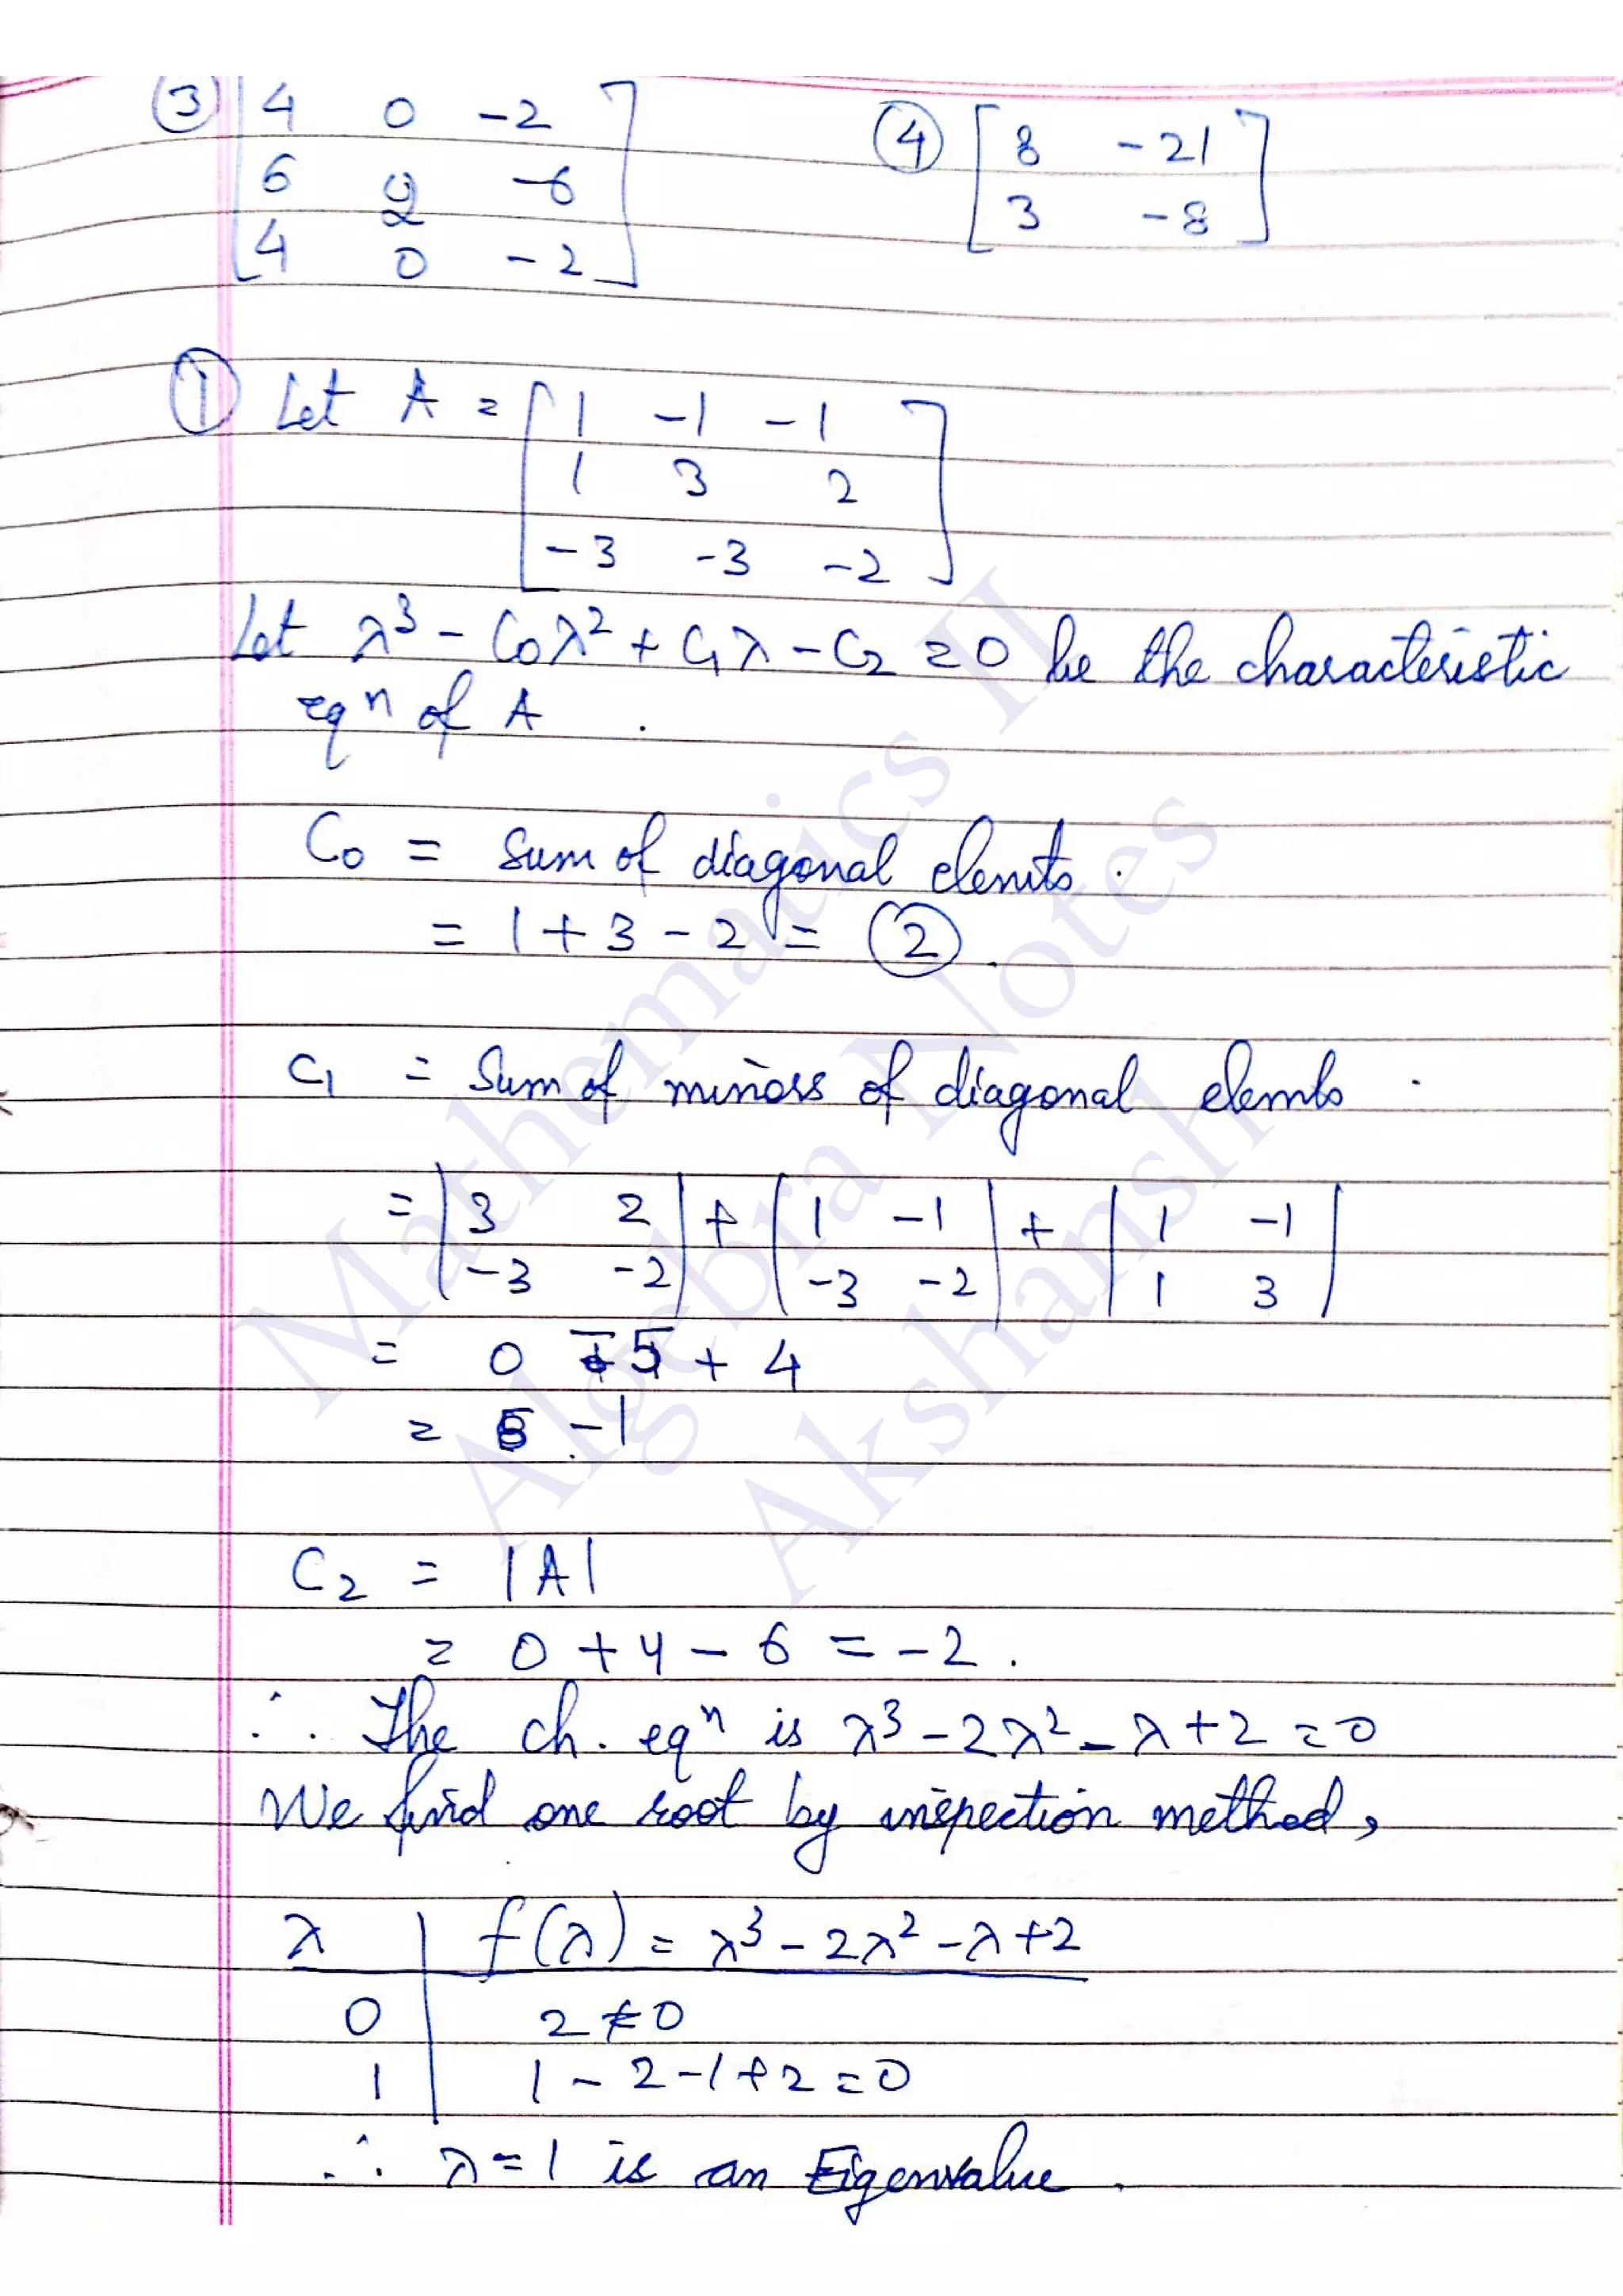 ③ [4 0 -2
6 2 -6
4 0 -2]
④ [8 -21
3 -8]
① Let A = [1 -1 -1
1 3 2
-3 -3 -2]
Let λ³ - C₀λ² + C₁λ - C₂ = 0 be the characteristic
eqⁿ of A .
C₀ = Sum of diagonal elemts .
= 1 + 3 - 2 = ② .
C₁ = Sum of minors of diagonal elemts .
= |3 2| + |1 -1| + |1 -1|
|-3 -2| |-3 -2| |1 3|
= 0 - 5 + 4
= -1
C₂ = |A|
= 0 + 4 - 6 = -2 .
∴ The ch. eqⁿ is λ³ - 2λ² - λ + 2 = 0
We find one root by inspection method,
λ | f(λ) = λ³ - 2λ² - λ + 2
0 | 2 ≠ 0
1 | 1 - 2 - 1 + 2 = 0
∴ λ = 1 is an Eigenvalue .
Mathematics II
Algebra Notes
Akshansh